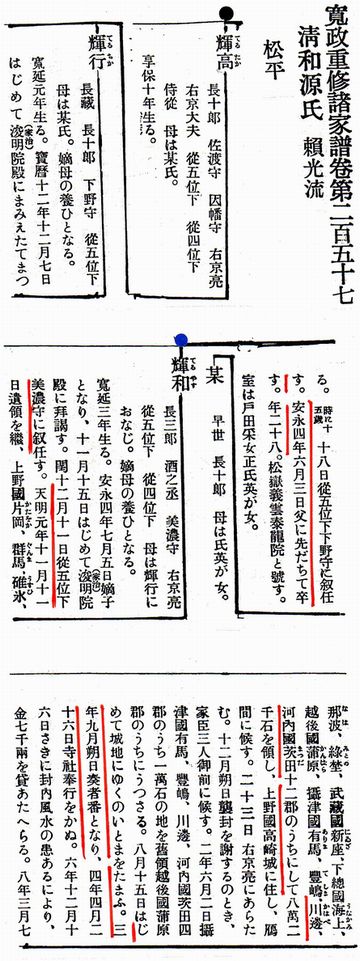 寬政重修諸家譜卷第二百五十七
清和源氏 賴光流
松平
輝高
てるたか
長十郎 佐渡守 因幡守 右京亮
右京大夫 從五位下 從四位下
侍從 母は某氏。
享保十年生る。
輝行
てるゆき
長藏 長十郎 下野守 從五位下
母は某氏。嫡母の養ひとなる。
寬延元年生る。寶曆十二年十二月七日
はじめて浚明院殿にまみえたてまつ
(家治)
る。時に十五歲 十八日從五位下下野守に叙任
す。安永四年六月三日父に先だちて卒
す。年二十八。松嶽義雲泰龍院と號す。
室は戶田采女正氏英が女。
某
早世 長十郎 母は氏英が女。
輝和
てるやす
長三郎 酒之丞 美濃守 右京亮
從五位下 從四位下 母は輝行に
おなじ。嫡母の養ひとなる。
寬延三年生る。安永四年七月五日嫡子
となり、十一月十五日はじめて浚明院
(家治)
殿に拜謁す。閏十二月十一日從五位下
美濃守に叙任す。天明元年十一月十一
日遺領を繼、上野國片岡、群馬、碓氷、
那波、綠埜、武藏國新座、下總國海上、
越後國蒲原、攝津國有馬、豐嶋、川邊、
河內國茨田十二郡のうちにして八萬二
千石を領し、上野國高崎城に住し、鴈
間に候す。二十三日右京亮にあらた
む。十二月朔日襲封を謝するのとき、
家臣三人御前に候す。二年六月二日攝
津國有馬、豐嶋、川邊、河內國茨田四
郡のうち一萬石の地を舊領越後國蒲原
郡のうちにうつさる。八月十五日はじ
めて城地にゆくのいとまをたまふ。三
年九月朔日奏者番となり、四年四月二
十六日寺社奉行をかぬ。六年十二月十
六日さきに封內風水の患あるにより、
金七千兩を貸あたへらる。八年三月七